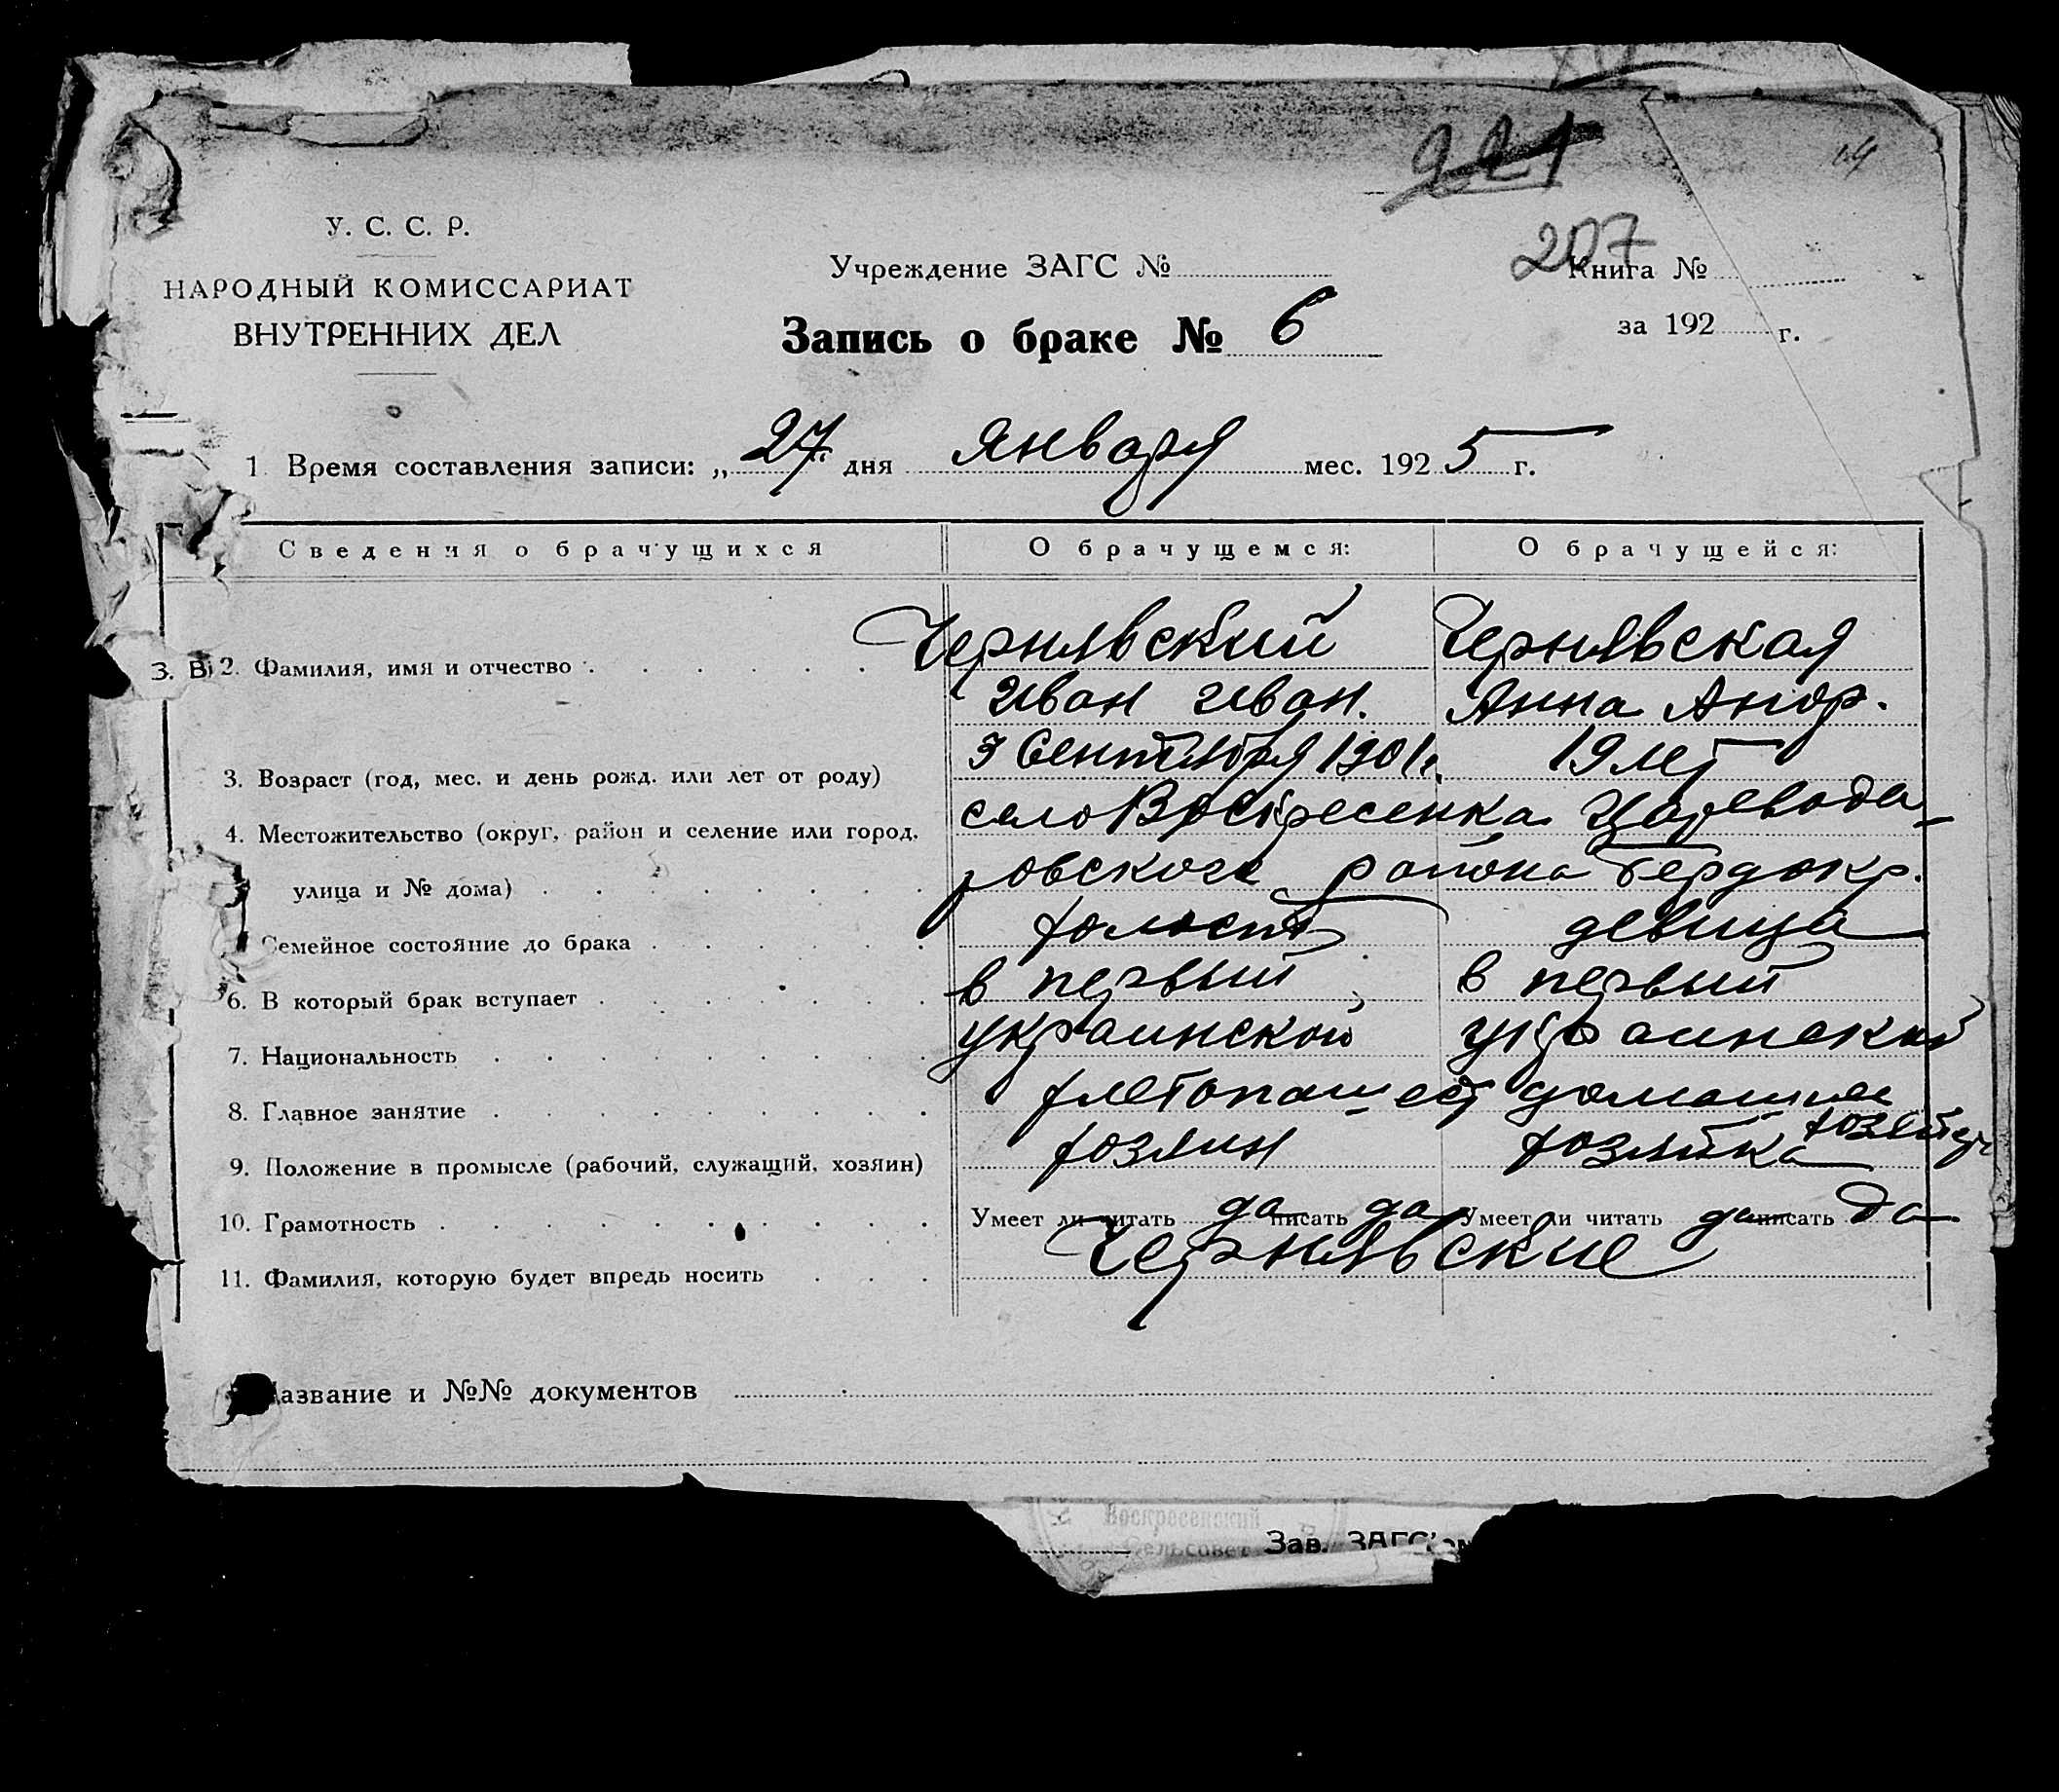 221
207
У. С. С. Р.
НАРОДНЫЙ КОМИССАРИАТ
ВНУТРЕННИХ ДЕЛ
Учреждение ЗАГС №
Книга №
Запись о браке № 6
за 192 г.
1. Время составления записи: „27“ дня Января мес. 1925 г.
Сведения о брачущихся О брачущемся: О брачущейся:
З. В. 2. Фамилия, имя и отчество Чернявский Чернявская
Иван Иван. Анна Андр.
3. Возраст (год, мес. и день рожд. или лет от роду) 3 Сентября 1901 г. 19 лет
4. Местожительство (округ, район и селение или город, село Воскресенка Царевода-
улица и № дома) ровского района Бердокр.
Семейное состояние до брака холост девица
6. В который брак вступает в первый в первый
7. Национальность украинской украинской
8. Главное занятие хлебопашец домашнее
9. Положение в промысле (рабочий, служащий, хозяин) хозяин хозяйка
10. Грамотность Умеет ли читать да писать да Умеет ли читать да писать да
11. Фамилия, которую будет впредь носить Чернявские
Название и №№ документов
Воскресенский
Сельсовет
Зав. ЗАГС'ом